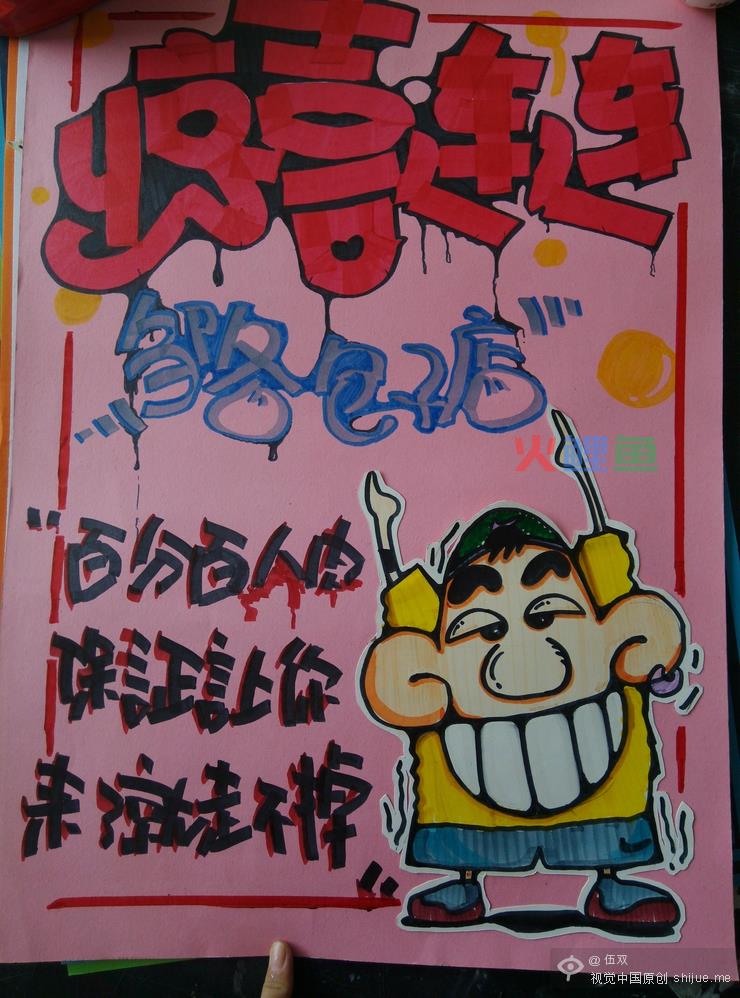 好喜连连
包子店
火鲤鱼
"百分百人肉
保証讓你
来了就走不掉"
@ 伍双
视觉中国原创 shijue.me